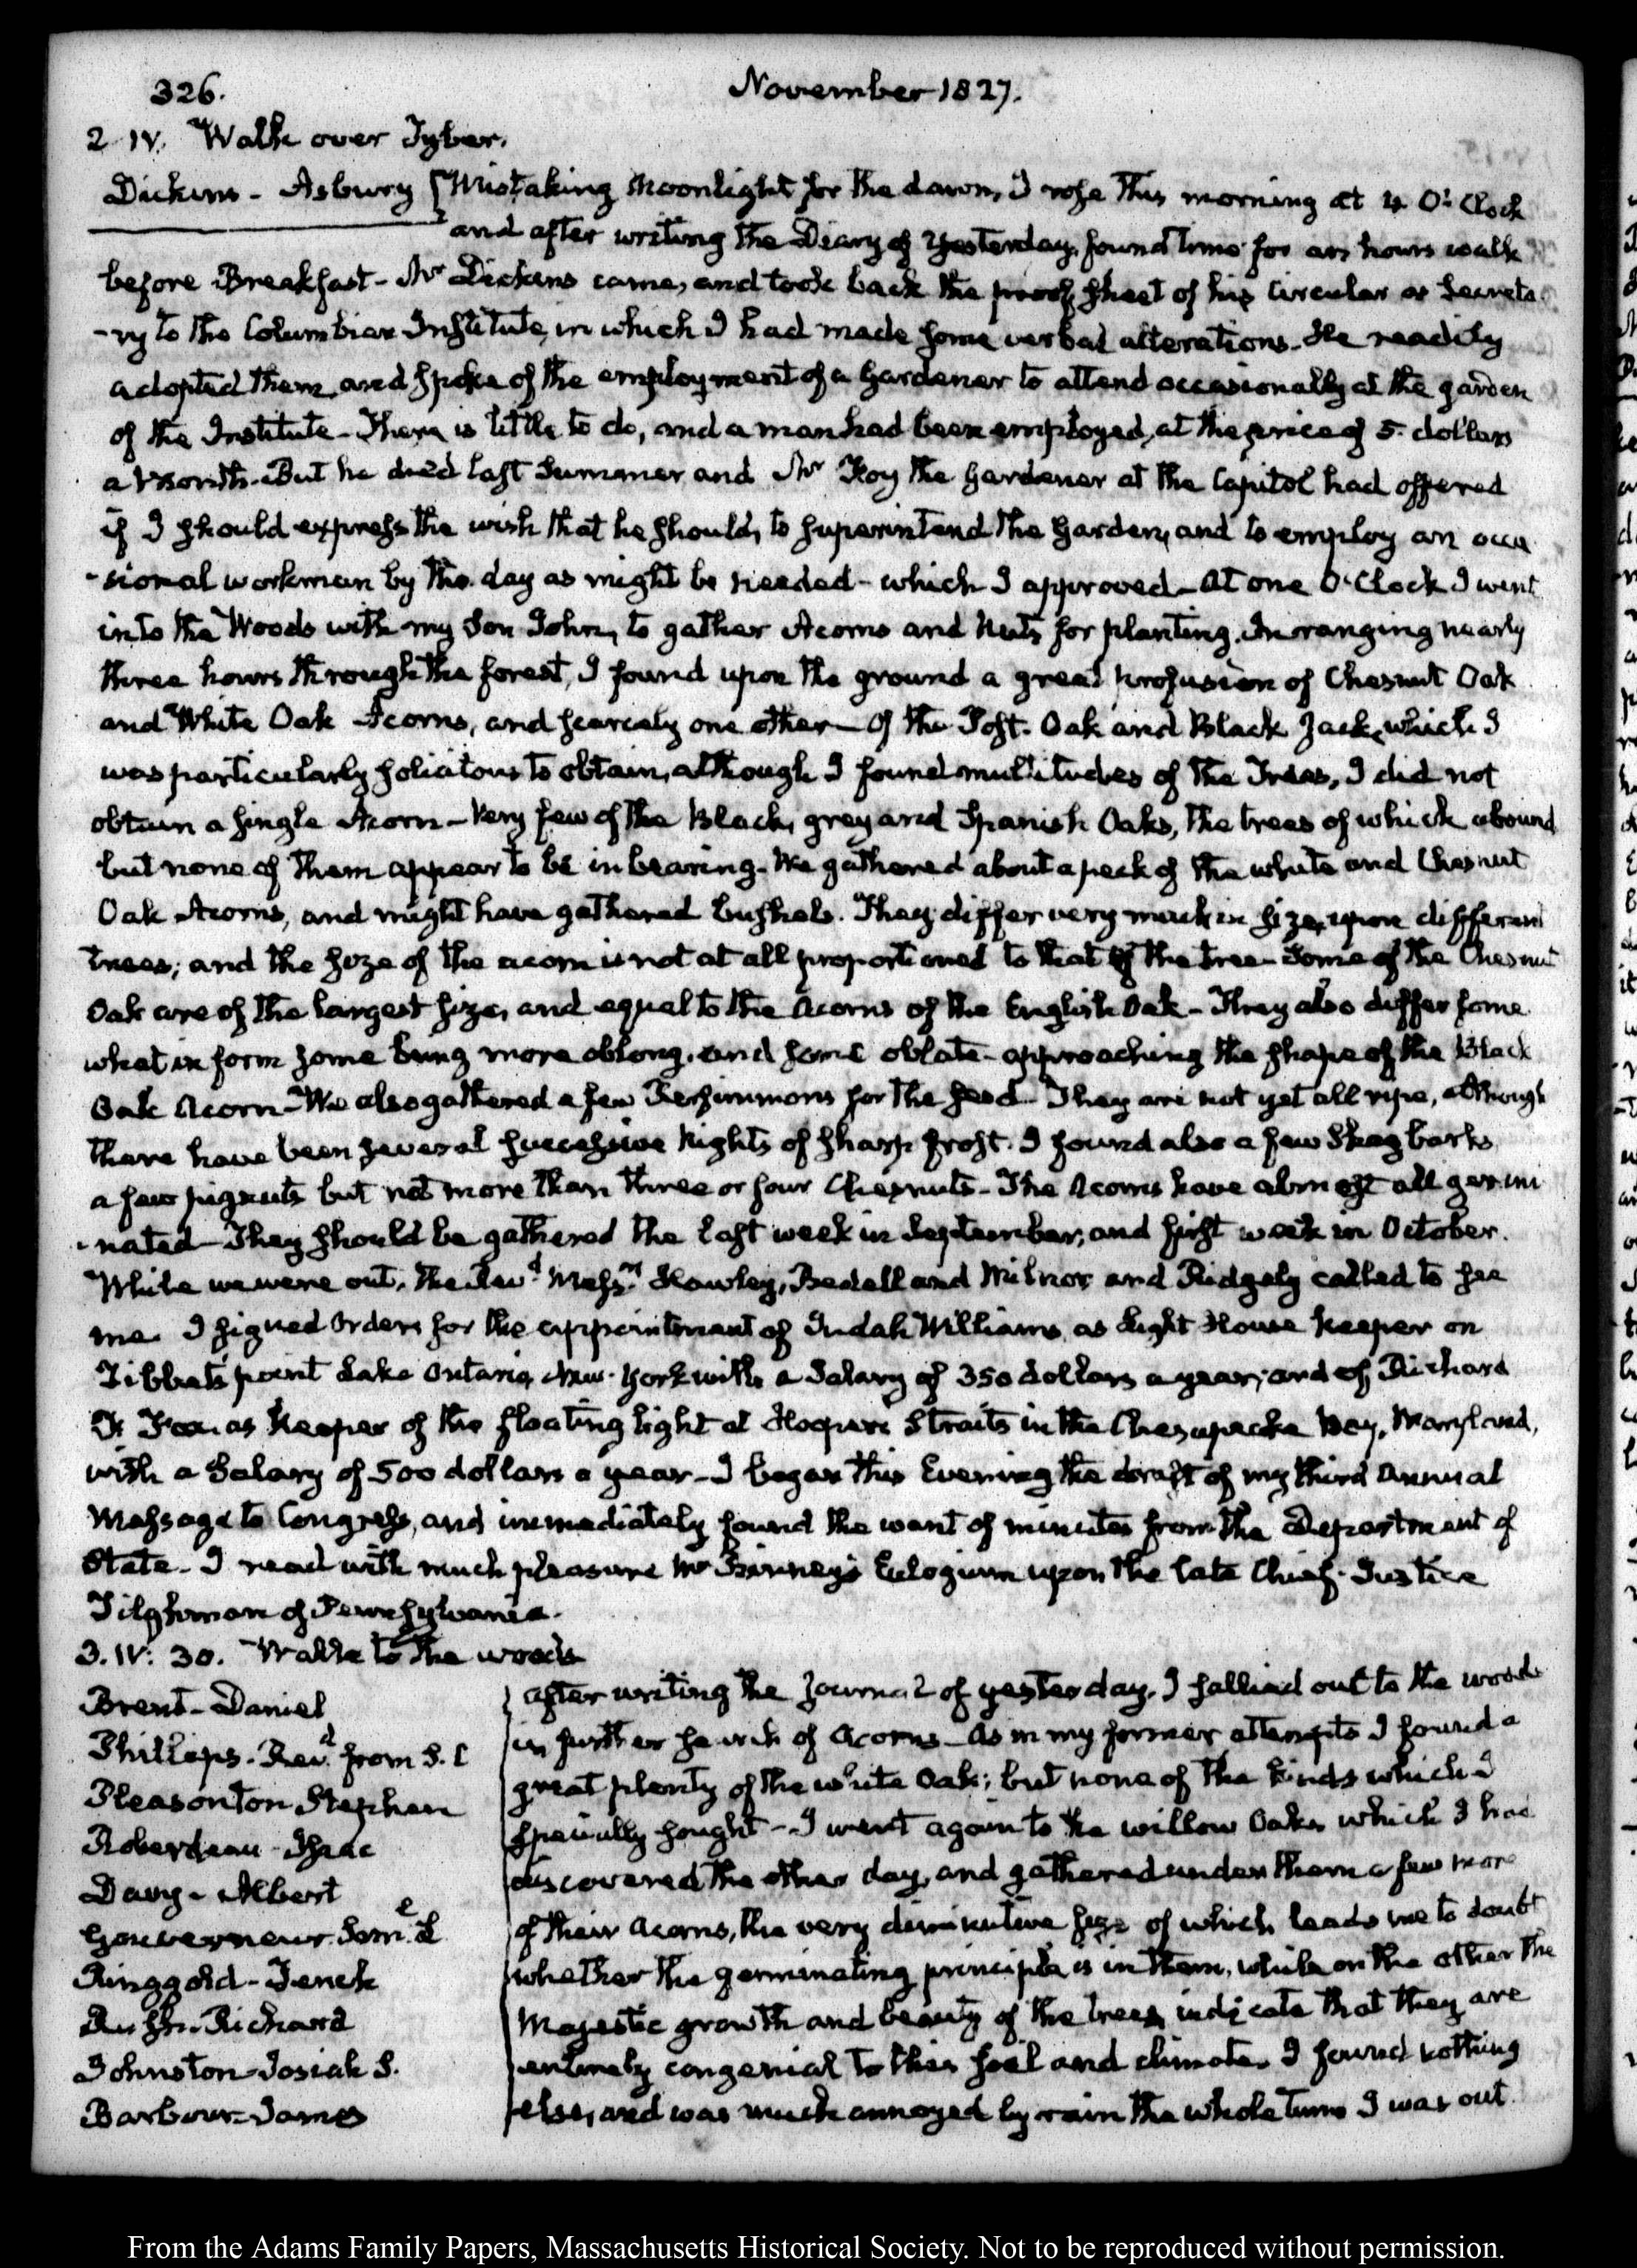 326.
November 1827.
2. IV. Walk over Tyber.
Dickins - Asbury Mistaking Moonlight for the dawn, I rose this morning at 4 O'Clock
and after writing the Diary of yesterday, found time for an hours walk
before Breakfast - Mr Dickins came, and took back the proof sheet of his Circular as Secreta
-ry to the Columbian Institute, in which I had made some verbal alterations. He readily
adopted them, and spoke of the employment of a Gardener to attend occasionally at the garden
of the Institute - There is little to do, and a man had been employed, at the price of 5. dollars
a Month. But he died last Summer and Mr Foy the Gardener at the Capitol had offered
if I should express the wish that he should, to superintend the Garden, and to employ an occa
-sional workman by the day as might be needed - which I approved - At one O'Clock I went
into the Woods with my Son John, to gather Acorns and Nuts for planting. In ranging nearly
three hours through the forest, I found upon the ground a great profusion of Chesnut Oak
and White Oak Acorns, and scarcely one other - Of the Post-Oak and Black Jack, which I
was particularly solicitous to obtain, although I found multitudes of the Trees, I did not
obtain a single Acorn - Very few of the Black, grey and Spanish Oaks, the trees of which abound
but none of them appear to be in bearing. We gathered about a peck of the white and Chesnut
Oak Acorns, and might have gathered bushels. They differ very much in size, upon different
trees; and the size of the acorn is not at all proportioned to that of the tree - Some of the Chesnut
Oak are of the largest size, and equal to the Acorns of the English Oak - They also differ some
what in form some being more oblong, and some oblate - approaching the shape of the Black
Oak Acorn - We also gathered a few Persimmons for the seed - They are not yet all ripe, although
there have been several successive Nights of sharp frost. I found also a few Shagbarks
a few pignuts but not more than three or four Chesnuts - The Acorns have almost all germi
-nated - They should be gathered the last week in September, and first week in October.
While we were out, the Revd. Messrs. Hawley, Bedell and Milnor, and Ridgely called to see
me. I signed Orders for the appointment of Judah Williams, as Light House keeper on
Tibbets point Lake Ontario, New-York with a Salary of 350 dollars a year; and of Richard
as Keeper of the floating light at Hoopers Straits in the Chesapeake Bay, Maryland,
with a Salary of 500 dollars a year - I began this Evening the draft of my third Annual
Message to Congress, and immediately found the want of minutes from the Department of
State - I read with much pleasure Mr Binney's Eulogium upon the late Chief-Justice
Tilghman of Pennsylvania.
3. IV: 30. Walk to the woods
Brent - Daniel
Phillips - Revd. from S. C
Pleasonton Stephen
Roberdeau - Isaac
Davy - Albert
Gouverneur. Saml. L
Ringgold - Tench
Rush - Richard
Johnston - Josiah S.
Barbour - James
After writing the Journal of yesterday, I sallied out to the woods
in further search of Acorns - As in my former attempts I found a
great plenty of the white Oak; but none of the kinds which I
specially sought - I went again to the willow Oaks which I had
discovered the other day, and gathered under them a few more
of their acorns, the very diminutive size of which leads me to doubt
whether the germinating principle is in them, while on the other the
Majestic growth and beauty of the trees, indicate that they are
entirely congenial to this soil and climate. I found nothing
else, and was much annoyed by rain the whole time I was out.
From the Adams Family Papers, Massachusetts Historical Society. Not to be reproduced without permission.